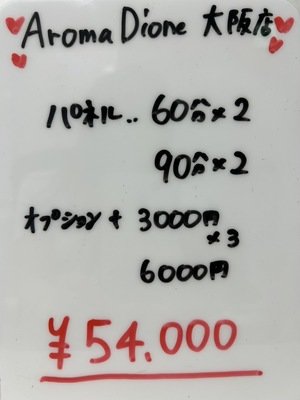 Aroma Dione 大阪店
パネル.. 60分×2
90分×2
オプション + 3000円
×3
6000円
¥54.000